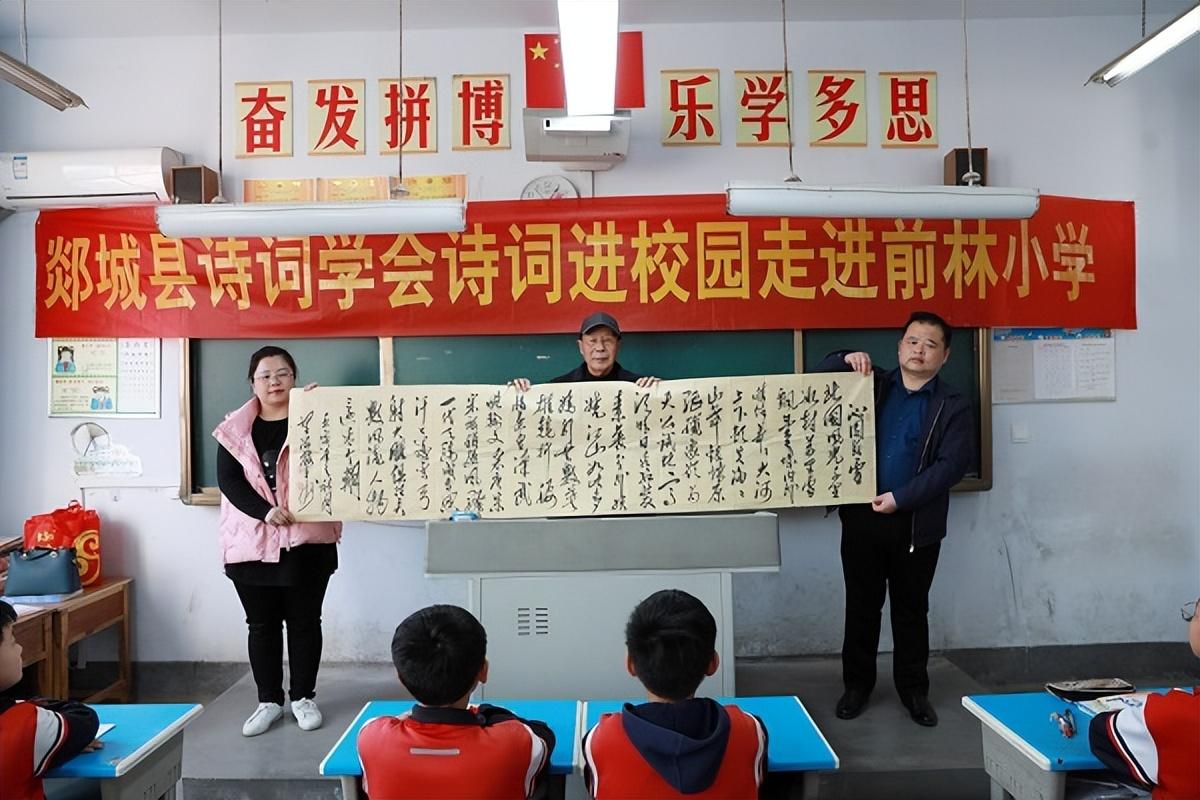 奋发拼博
乐学多思
郯城县诗词学会诗词进校园走进前林小学
沁园春雪
北国风光千里
冰封万里雪
大河
上下顿失滔滔
山舞银蛇原
天公试比高
须晴日看红装
素裹分外妖
娆江山如此多
娇引无数英
雄竞折腰
惜秦皇汉武
略输文采唐宗
宋祖稍逊风骚
一代天骄成吉思
汗只识弯弓
射大雕俱往矣
数风流人物
还看今朝